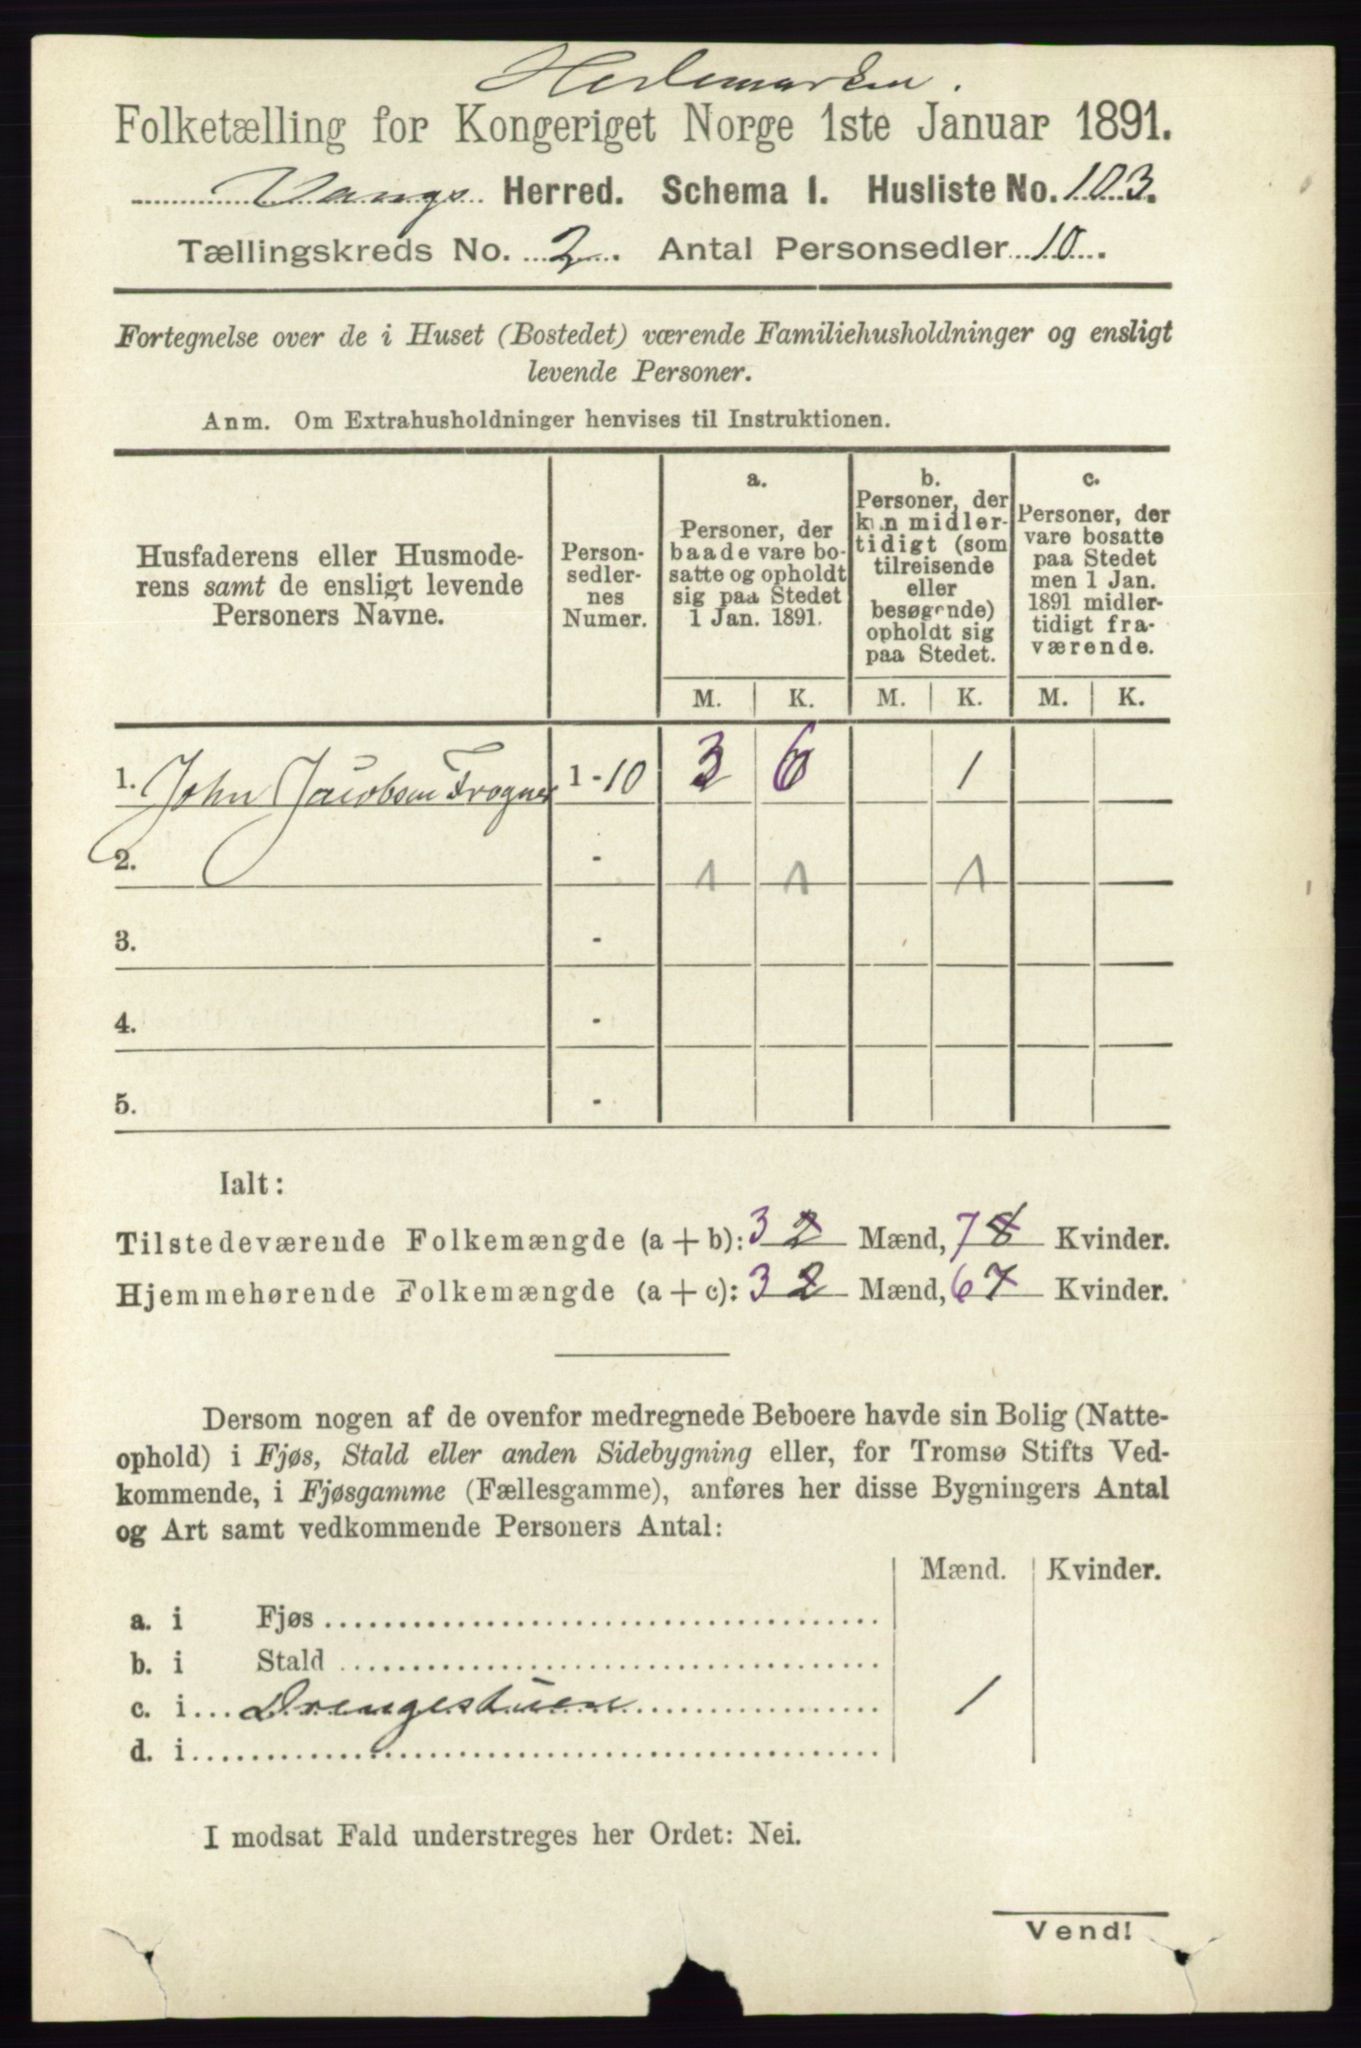 Hedemarken.
Folketælling for Kongeriget Norge 1ste Januar 1891.
Vangs Herred. Schema I. Husliste No. 103.
Tællingskreds No. 2. Antal Personsedler 10.
Fortegnelse over de i Huset (Bostedet) værende Familiehusholdninger og ensligt
levende Personer.
Anm. Om Extrahusholdninger henvises til Instruktionen.
Husfaderens eller Husmode-
rens samt de ensligt levende
Personers Navne.
Person-
sedler-
nes
Numer.
a.
Personer, der
baade vare bo-
satte og opholdt
sig paa Stedet
1 Jan. 1891.
b.
Personer, der
kun midler-
tidigt (som
tilreisende
eller
besøgende)
opholdt sig
paa Stedet.
c.
Personer, der
vare bosatte
paa Stedet
men 1 Jan.
1891 midler-
tidigt fra-
værende.
M. K. M. K. M. K.
1. John Jacobsen Frogner 1 - 10 3 6 1
2. - 1 1 1
3. -
4. -
5. -
Ialt:
Tilstedeværende Folkemængde (a + b): 3 2 Mænd, 7 8 Kvinder.
Hjemmehørende Folkemængde (a + c): 3 2 Mænd, 6 7 Kvinder.
Dersom nogen af de ovenfor medregnede Beboere havde sin Bolig (Natte-
ophold) i Fjøs, Stald eller anden Sidebygning eller, for Tromsø Stifts Ved-
kommende, i Fjøsgamme (Fællesgamme), anføres her disse Bygningers Antal
og Art samt vedkommende Personers Antal:
Mænd. Kvinder.
a. i Fjøs
b. i Stald
c. i Drengestuen 1
d. i
I modsat Fald understreges her Ordet: Nei.
Vend!